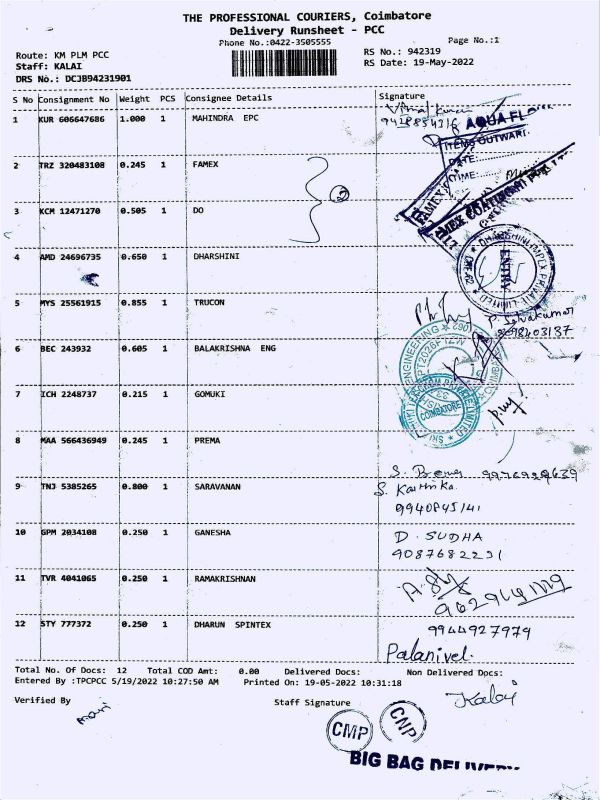 THE PROFESSIONAL COURIERS, Coimbatore
Delivery Runsheet - PCC
Phone No.:0422-3505555
Page No.:1
Route: KM PLM PCC
RS No.: 942319
Staff: KALAI
RS Date: 19-May-2022
DRS No.: DCJB94231901
S No Consignment No Weight PCS Consignee Details Signature
1 KUR 606647686 1.000 1 MAHINDRA EPC
AQUA
ITEMS OUTWARD
DATE:
TIME:
2 TRZ 320483108 0.245 1 FAMEX
3 KCM 12471270 0.505 1 DO
4 AMD 24696735 0.650 1 DHARSHINI
ENTRY
5 MYS 25561915 0.855 1 TRUCON
P. Selvakumar
6 BEC 243932 0.605 1 BALAKRISHNA ENG
ENGINEERING
7 ICH 2248737 0.215 1 GOMUKI
COIMBATORE
8 MAA 566436949 0.245 1 PREMA
9 TNJ 5385265 0.800 1 SARAVANAN
S. Karthika
9940845141
10 GPM 2034108 0.250 1 GANESHA
D. SUDHA
9087682231
11 TVR 4041065 0.250 1 RAMAKRISHNAN
12 STY 777372 0.250 1 DHARUN SPINTEX
9944927979
Palanivel.
Total No. Of Docs: 12 Total COD Amt: 0.00 Delivered Docs: Non Delivered Docs:
Entered By :TPCPCC 5/19/2022 10:27:50 AM Printed On: 19-05-2022 10:31:18
Verified By
Staff Signature
Kalai
mani
CMP
CNP
BIG BAG DELIVERY